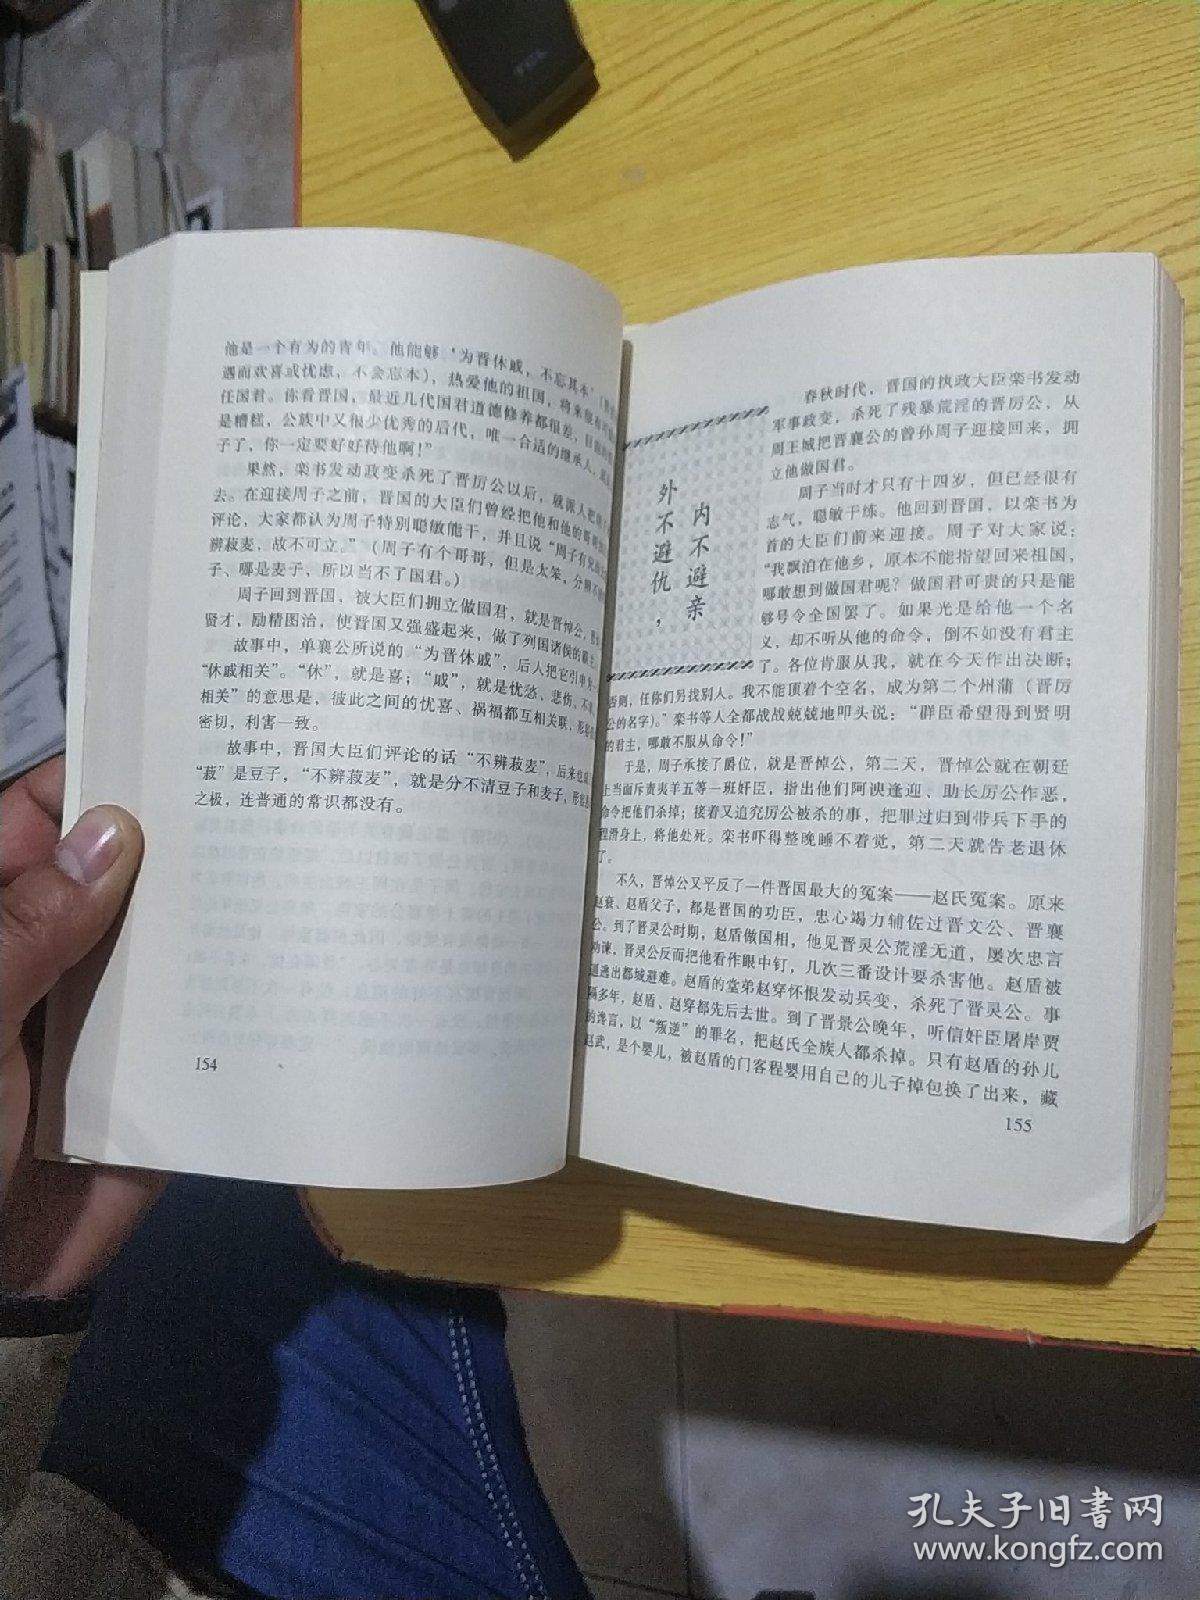 他是一个有为的青年。他能够‘为晋休戚，不忘其本’
遇而欢喜或忧虑，不会忘本），热爱他的祖国，将来很有可
任国君。你看晋国，最近几代国君道德修养都很差，目前的
是糟糕，公族中又很少优秀的后代，唯一合适的继承人，
子了，你一定要好好待他啊！”
果然，栾书发动政变杀死了晋厉公以后，就派人把
去。在迎接周子之前，晋国的大臣们曾经把他和他的哥哥
评论，大家都认为周子特别聪敏能干，并且说“周子有兄
辨菽麦，故不可立。”（周子有个哥哥，但是太笨，分辨不
子、哪是麦子，所以当不了国君。）
周子回到晋国，被大臣们拥立做国君，就是晋悼公，
贤才，励精图治，使晋国又强盛起来，做了列国诸侯的霸主。
故事中，单襄公所说的“为晋休戚”，后人把它引申为
“休戚相关”。“休”，就是喜；“戚”，就是忧愁、悲伤，不
相关”的意思是，彼此之间的忧喜、祸福都互相关联，形容
密切，利害一致。
故事中，晋国大臣们评论的话“不辨菽麦”，后来也成
“菽”是豆子，“不辨菽麦”，就是分不清豆子和麦子，形容
之极，连普通的常识都没有。
154
外不避仇，
内不避亲
春秋时代，晋国的执政大臣栾书发动
军事政变，杀死了残暴荒淫的晋厉公，从
周王城把晋襄公的曾孙周子迎接回来，拥
立他做国君。
周子当时才只有十四岁，但已经很有
志气，聪敏干练。他回到晋国，以栾书为
首的大臣们前来迎接。周子对大家说：
“我飘泊在他乡，原本不能指望回来祖国，
哪敢想到做国君呢？做国君可贵的只是能
够号令全国罢了。如果光是给他一个名
义，却不听从他的命令，倒不如没有君主
了。各位肯服从我，就在今天作出决断；
否则，任你们另找别人。我不能顶着个空名，成为第二个州蒲（晋厉
公的名字）。”栾书等人全都战战兢兢地叩头说：“群臣希望得到贤明
的君主，哪敢不服从命令！”
于是，周子承接了爵位，就是晋悼公，第二天，晋悼公就在朝廷
上当面斥责夷羊五等一班奸臣，指出他们阿谀逢迎、助长厉公作恶，
命令把他们杀掉；接着又追究厉公被杀的事，把罪过归到带兵下手的
程滑身上，将他处死。栾书吓得整晚睡不着觉，第二天就告老退休
了。
不久，晋悼公又平反了一件晋国最大的冤案——赵氏冤案。原来
赵衰、赵盾父子，都是晋国的功臣，忠心竭力辅佐过晋文公、晋襄
公。到了晋灵公时期，赵盾做国相，他见晋灵公荒淫无道，屡次忠言
劝谏。晋灵公反而把他看作眼中钉，几次三番设计要杀害他。赵盾被
逼逃出都城避难。赵盾的堂弟赵穿怀恨发动兵变，杀死了晋灵公。事
隔多年，赵盾、赵穿都先后去世。到了晋景公晚年，听信奸臣屠岸贾
的谗言，以“叛逆”的罪名，把赵氏全族人都杀掉。只有赵盾的孙儿
赵武，是个婴儿，被赵盾的门客程婴用自己的儿子掉包换了出来，藏
155
孔夫子旧书网
www.kongfz.com